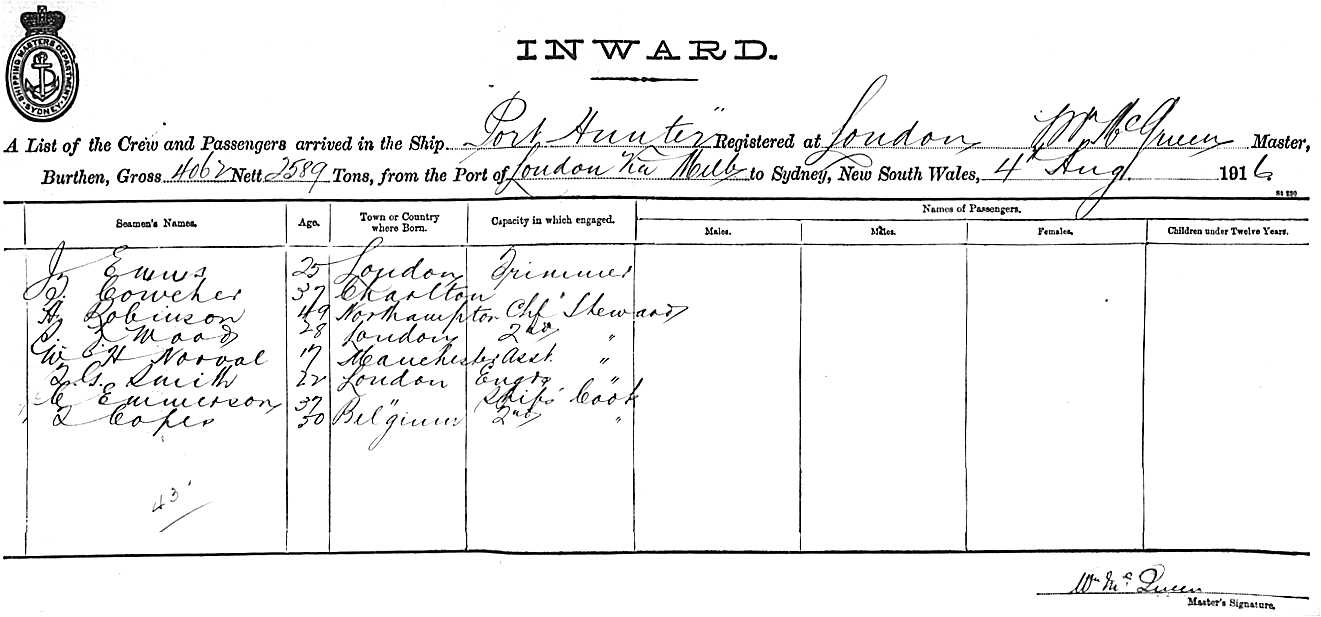 SHIPPING MASTER'S DEPARTMENT SYDNEY
INWARD.
A List of the Crew and Passengers arrived in the Ship "Port Hunter" Registered at London Wm McQueen Master,
Burthen, Gross 4062 Nett 2589 Tons, from the Port of London Via Melb to Sydney, New South Wales, 4th Aug 1916
St 230
Seamen's Names. Age. Town or Country where Born. Capacity in which engaged. Names of Passengers.
Males. Males. Females. Children under Twelve Years.
J. Emms 25 London Trimmer
Cowcher 37 Charlton
H Robinson 49 Northampton Chf Steward
Wood 28 London 2nd "
W H Norval 17 Manchester Asst "
G. Smith 22 London Engrs "
C Emmerson 37 " Ship's Cook
Copes 30 Belgium 2nd "
43
Wm McQueen
Master's Signature.